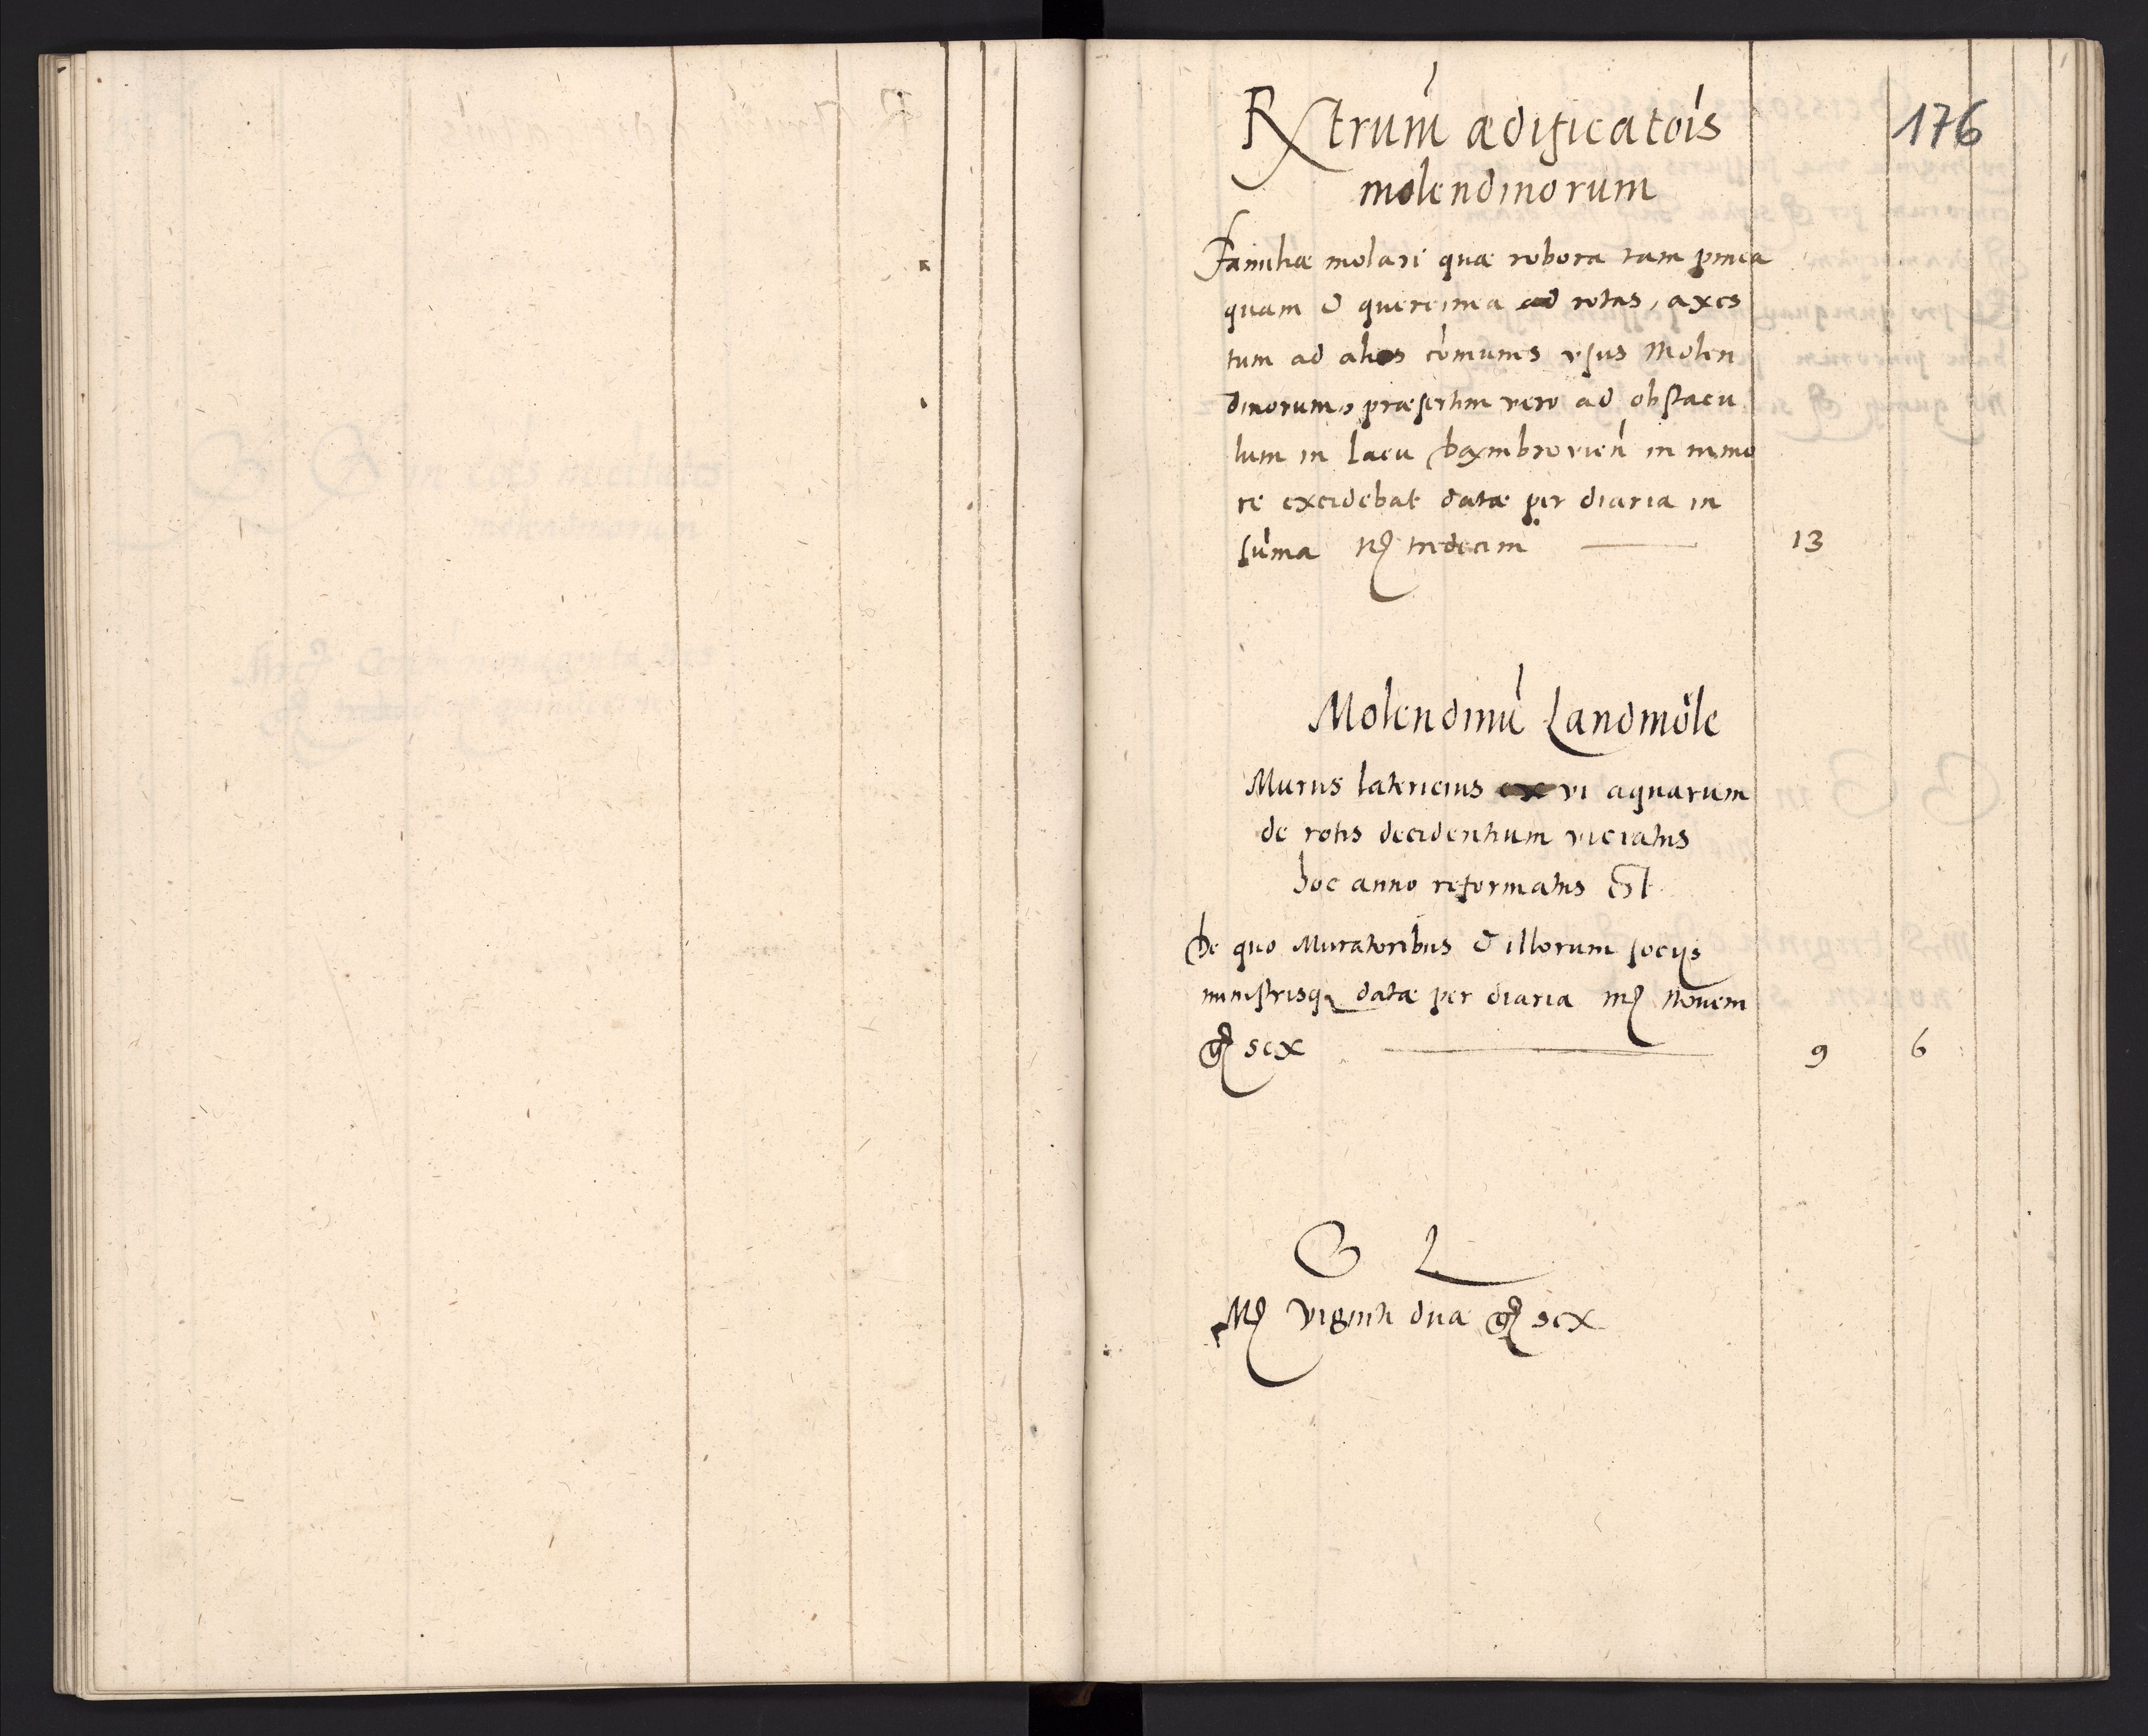 176
Rxtrum̄ ædificatōis
molendinorum
Familiæ molari quæ robora tam pinea
quam & quercinea ad rotas, axes
tum ad alios cōmunes vsus Molen
dinorum, præsertim vero ad obstacu
lum in lacu Dambrovien̄ in nemo
re excidebat datæ per diaria in
sūma mr̄ tredecim 13
Molendinū Landmöle
Murus latericius vi aquarum
de rotis decidentium viciatus
hoc anno reformatus Est
De quo Muratoribus & illorum socijs
ministrisq datæ per diaria mr̄ Novem
gr̄ sex 9 6
Mr̄ viginti dua gr̄ sex